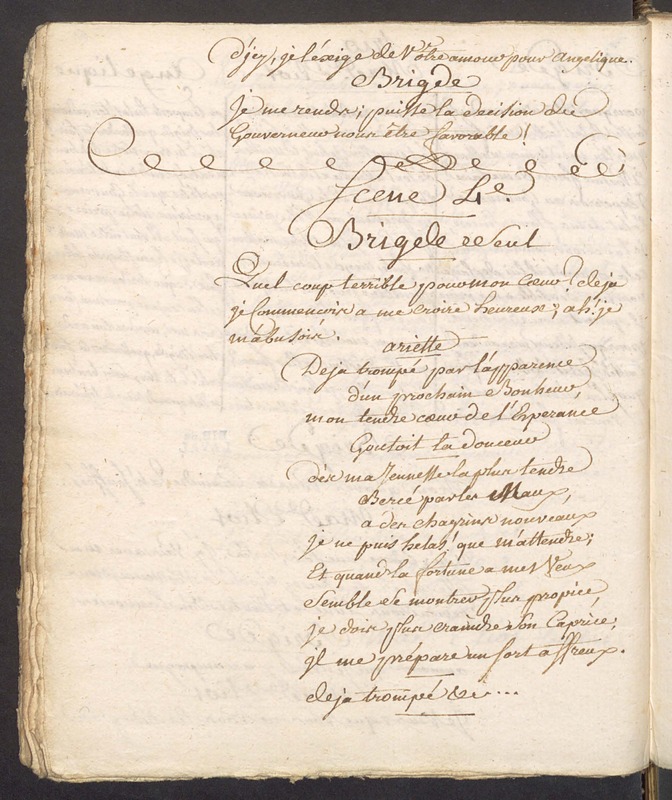 D'icy, je l'exige de Votre amour pour angelique.
Brigde
Je me rends; puisse la decision du
Gouverneur nous être favorable!
Scene 4.e
Brigde seul
Quel coup terrible pour mon coeur! deja
je Commencois a me croire heureux; ah! je
m'abusois.
ariette
Deja trompé par l'apparence
d'un prochain Bonheur,
mon tendre coeur de l'Esperance
Goutoit la douceur
Des ma Jeunesse la plus tendre
Bercé par les Maux,
a des chagrins nouveaux
je ne puis helas! que m'attendre;
Et quand la fortune a mes Yeux
Semble se montrer plus propice,
je dois plus craindre son Caprice;
il me prépare un sort affreux.
deja trompé &c....